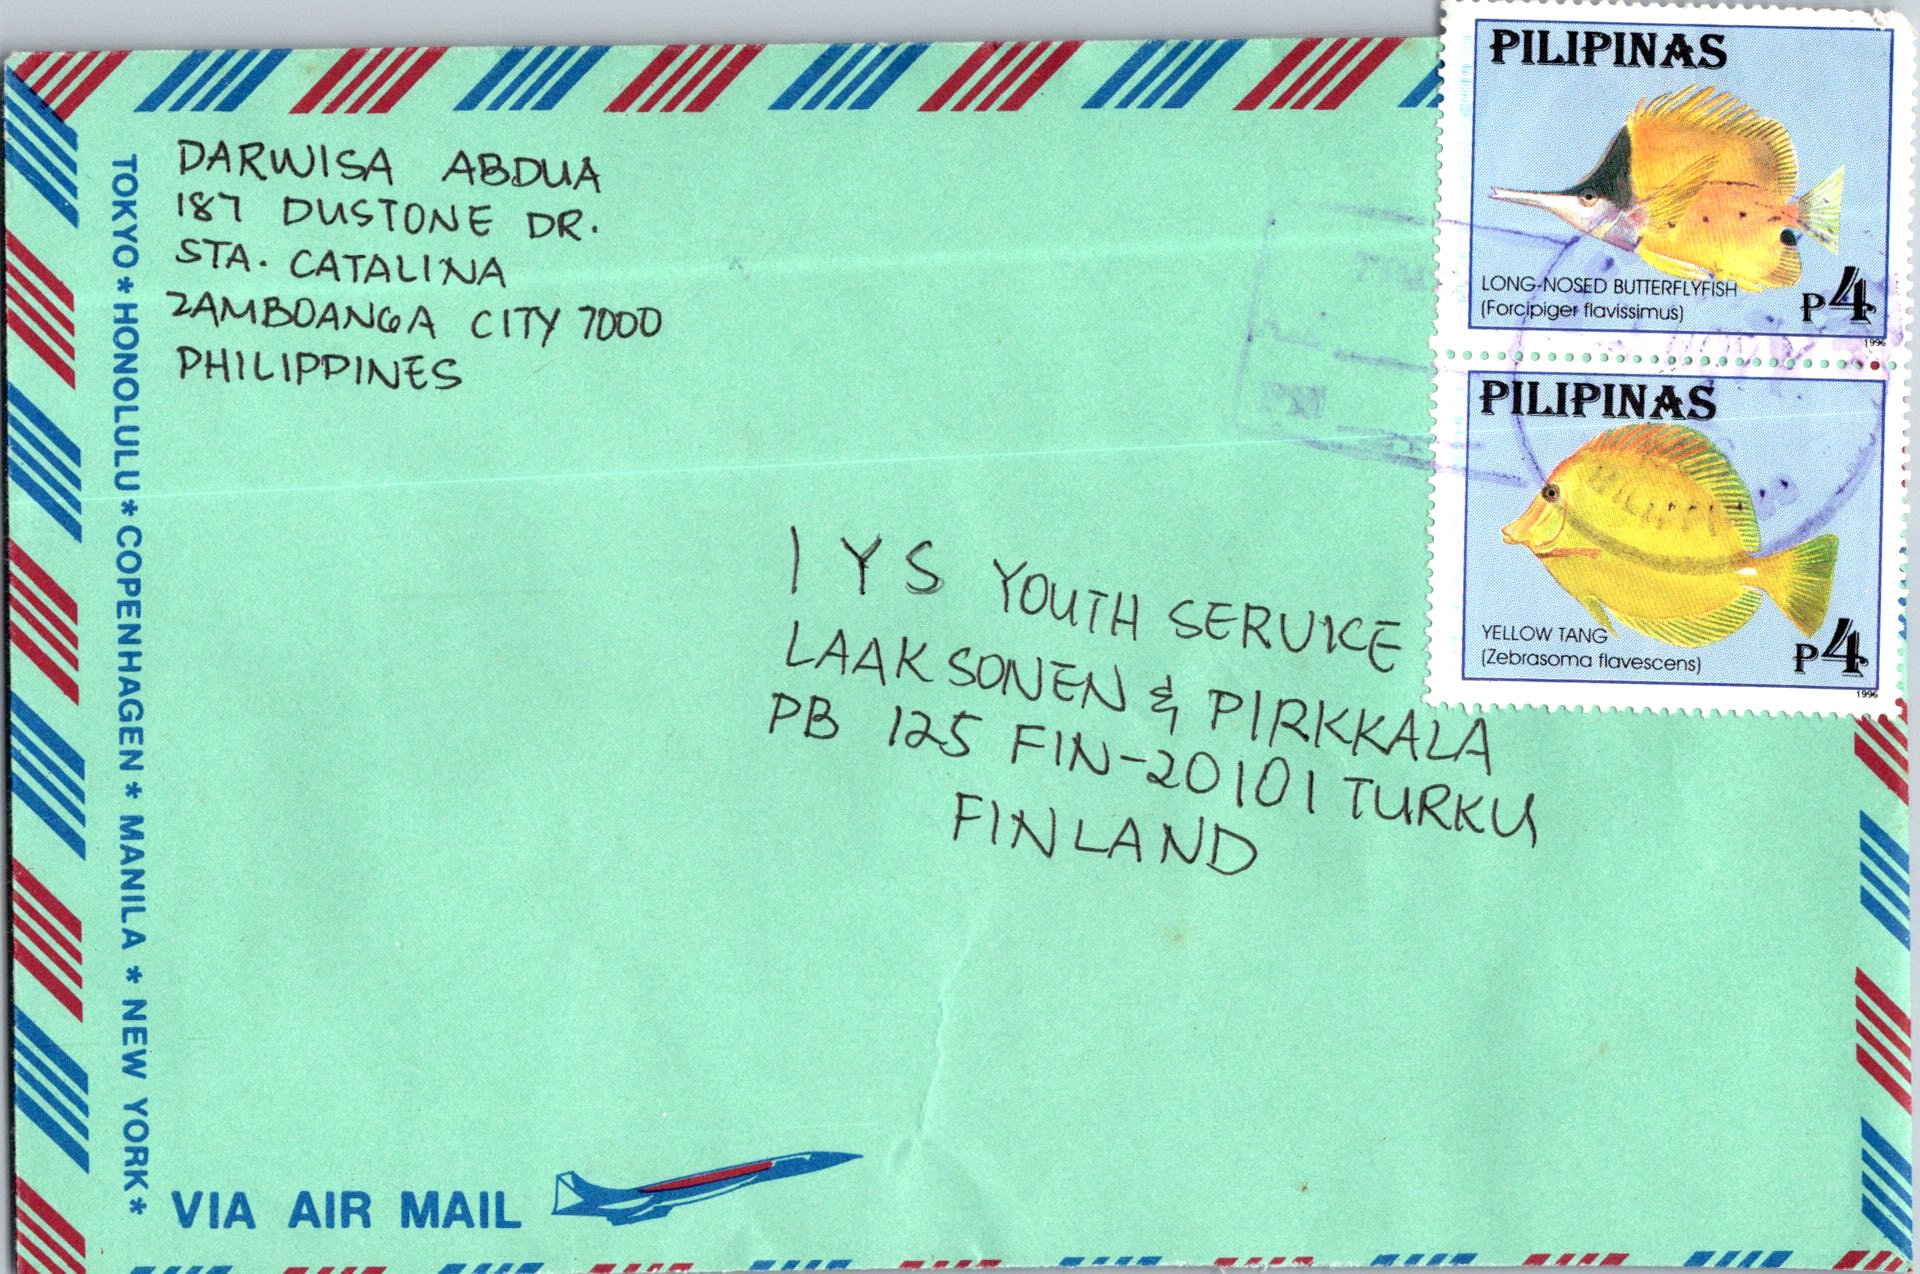 DARWISA ABDUA
187 DUSTONE DR.
STA. CATALINA
ZAMBOANGA CITY 7000
PHILIPPINES
TOKYO * HONOLULU * COPENHAGEN * MANILA * NEW YORK *
PILIPINAS
LONG-NOSED BUTTERFLYFISH
(Forcipiger flavissimus)
P4
1996
PILIPINAS
YELLOW TANG
(Zebrasoma flavescens)
P4
1996
I Y S YOUTH SERVICE
LAAKSONEN & PIRKKALA
PB 125 FIN-20101 TURKU
FINLAND
VIA AIR MAIL